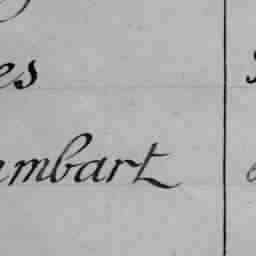 es
mbart